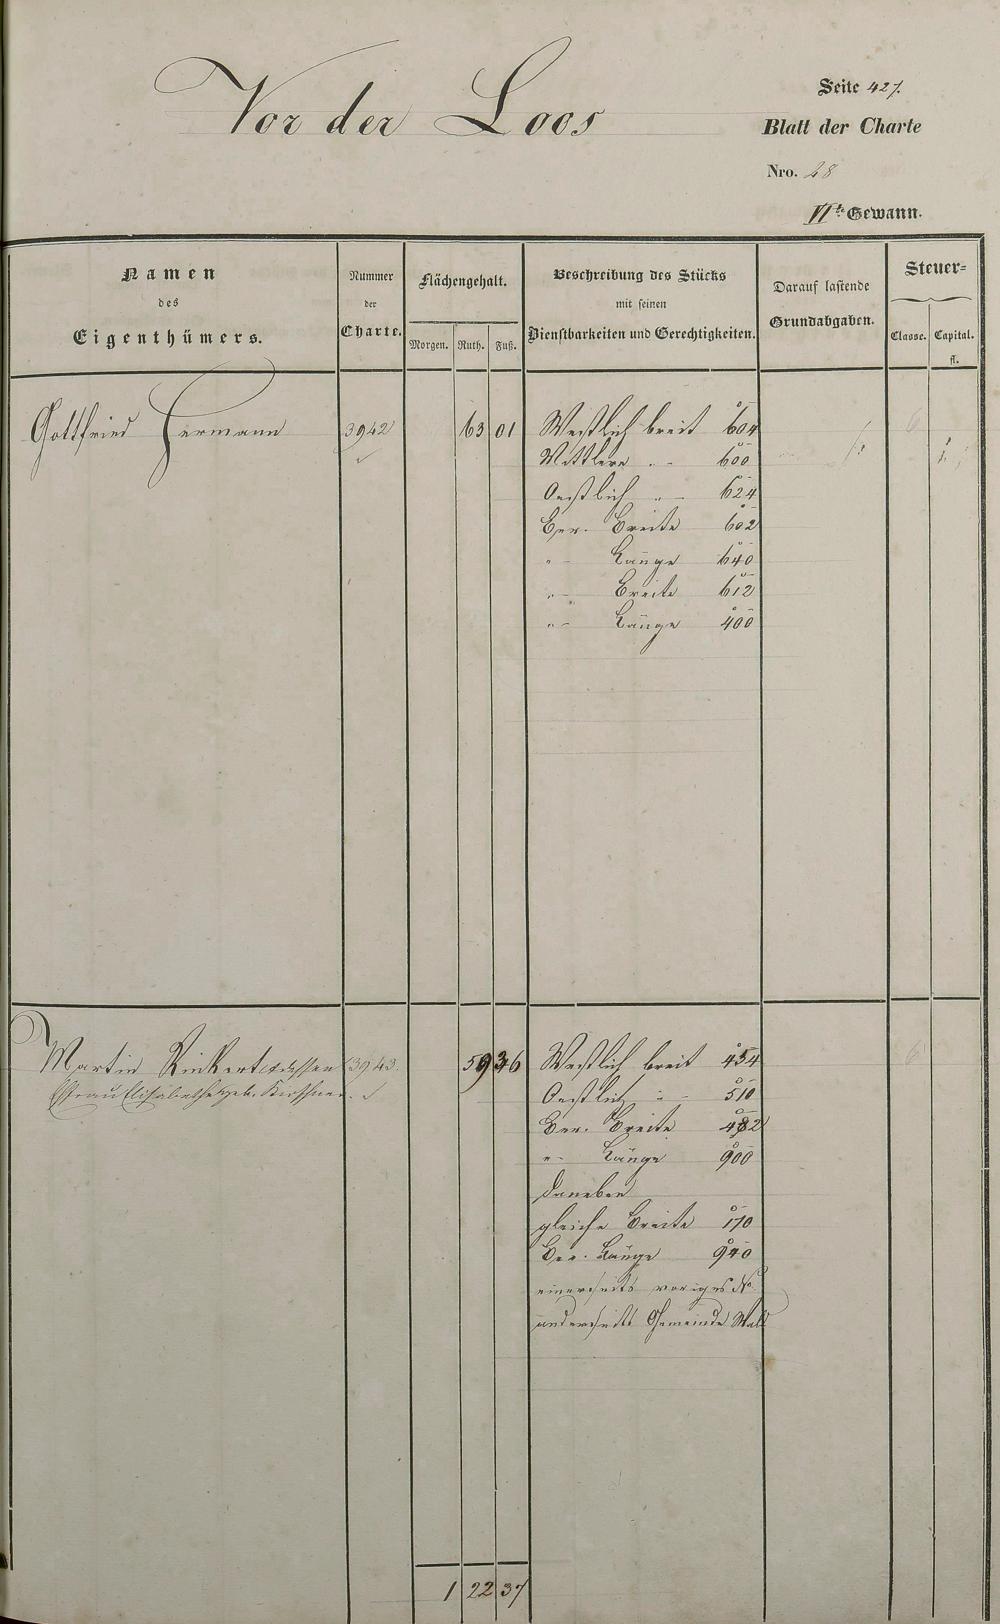 Vor der Loos
Seite 427.
Blatt der Charte
Nro. 28
VIte Gewann.
Namen
des
Eigenthümers.
Nummer
der
Charte.
Flächengehalt.
Morgen. Ruth. Fuß.
Beschreibung des Stücks
mit seinen
Dienstbarkeiten und Gerechtigkeiten.
Darauf lastende
Grundabgaben.
Steuer-
Classe. Capital.
fl.
Gottfried Hermann 3942 63 01 Westlich breit 604 6
Mittlere " 600
Oestlich " 624
Ber. Breite 602
" Länge 640
" Breite 612
" Länge 400
Martin Rinkert dessen 3943. 59 36 Westlich breit 454 6
Ehefrau Elisabetha geb. Kirchner.
Oestlich " 510
Ber. Breite 482
" Länge 900
daneben
gleiche Breite 170
Ber. Länge 940
einerseits voriges No
anderseits Gemeinde Wald
1 22 37